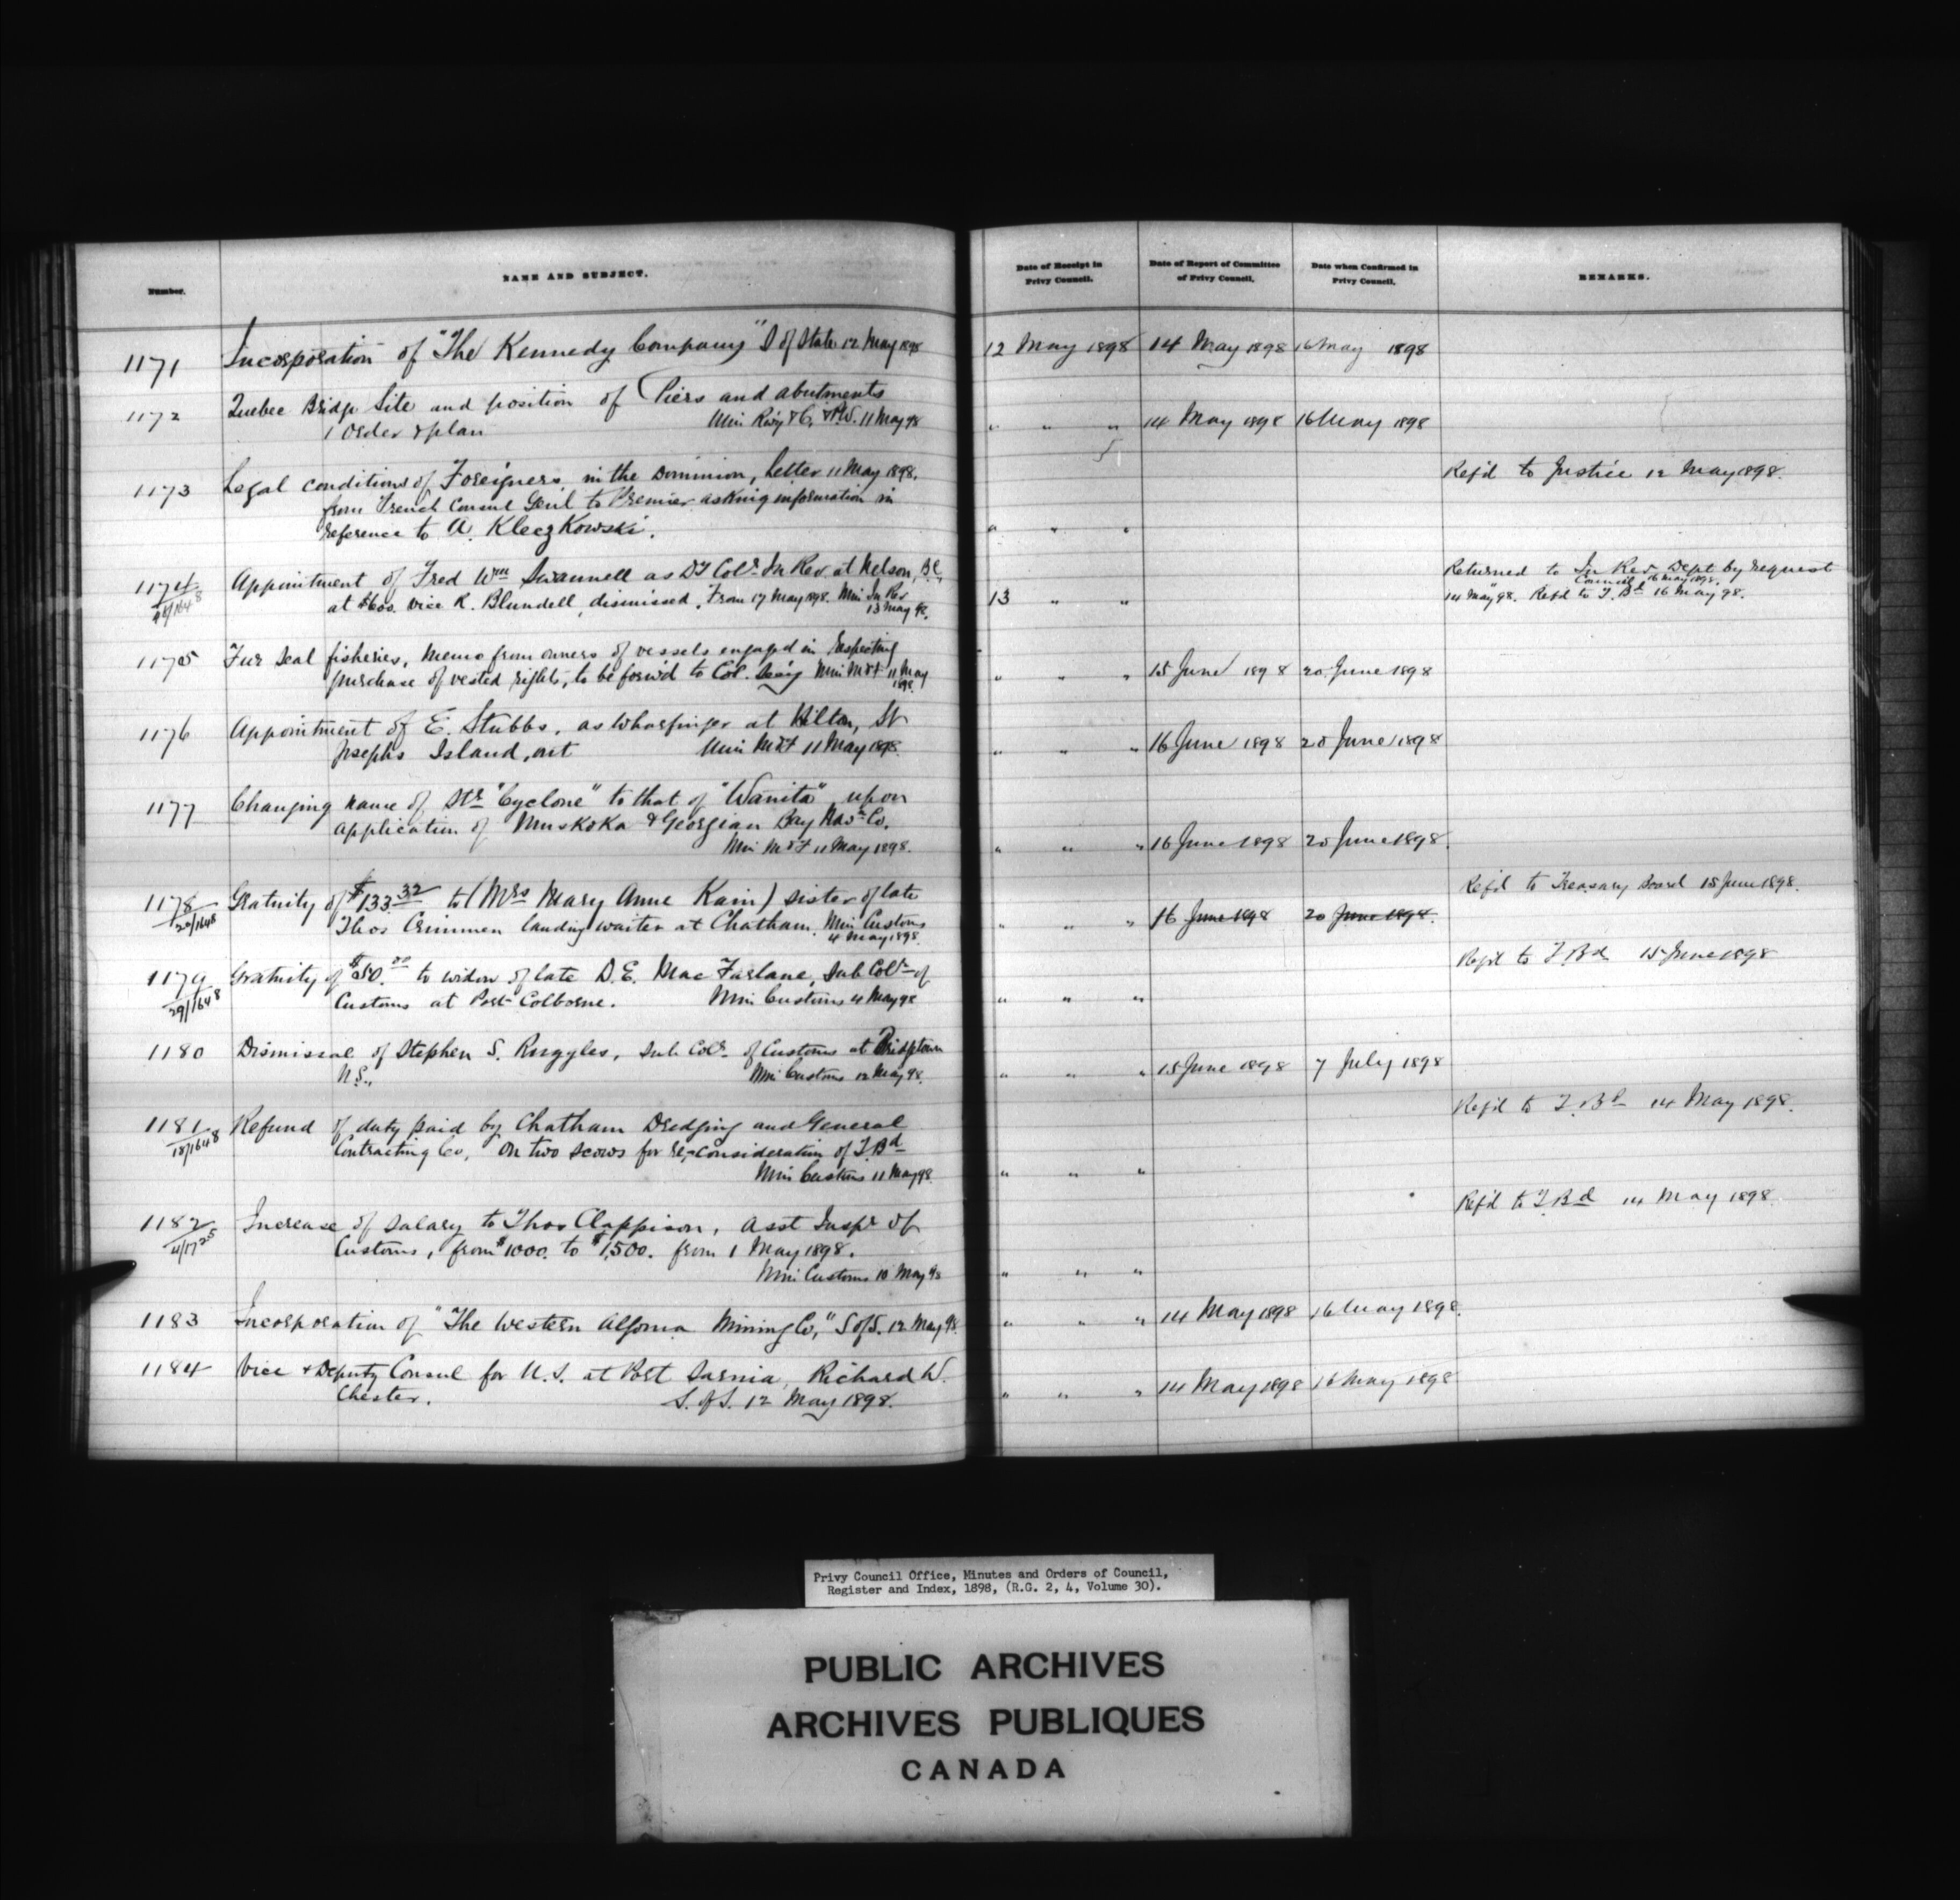 Number.
NAME AND SUBJECT.
Date of Receipt in Privy Council.
Date of Report of Committee of Privy Council.
Date when Confirmed in Privy Council.
REMARKS.
1171 Incorporation of "The Kennedy Company" S of State 12 May 1898 12 May 1898 14 May 1898 16 May 1898
1172 Quebec Bridge Site and position of Piers and abutments
1 Order & plan Min Rwy & C. & P.W. 11 May 98 " " " 14 May 1898 16 May 1898
1173 Legal conditions of Foreigners in the Dominion, Letter 11 May 1898, Ref'd to Justice 12 May 1898.
from French Consul Genl to Premier asking information in
reference to A. Kleczkowski. " " "
1174 Appointment of Fred Wm Swannell as Dy Colr In Rev at Nelson, B.C, Returned to In Rev. Dept by request
Council 16 May 1898.
at $600. vice R. Blundell, dismissed. From 17 May 1898. Min In Rev 13 " " 14 May 98. Ref'd to T. Bd 16 May 98.
13 May 98.
1175 Fur Seal fisheries, Memo from owners of vessels engaged in respecting
purchase of vested rights, to be forw'd to Col. Sec'y Min M & F 11 May " " " 15 June 1898 20 June 1898
1898.
1176 Appointment of E. Stubbs, as Wharfinger at Hilton, St
Josephs Island, Ont Min M & F 11 May 1898. " " " 16 June 1898 20 June 1898
1177 Changing name of Str "Cyclone" to that of "Wanita" upon
application of Muskoka & Georgian Bay Navn Co.
Min M & F 11 May 1898. " " " 16 June 1898 20 June 1898.
1178 Gratuity of $133.32 to (Mrs Mary Anne Kain) sister of late Ref'd to Treasury Board 15 June 1898.
20/1648 Thos Crimmen landing waiter at Chatham. Min Customs " " " 16 June 1898 20 June 1898.
4 May 1898.
1179 Gratuity of $50.00 to widow of late D. E. MacFarlane, Sub Colr of Ref'd to T Bd 15 June 1898
29/1648 Customs at Port Colborne. Min Customs 4 May 98 " " "
1180 Dismissal of Stephen S. Ruggles, Sub Colr of Customs at Bridgetown
N.S., Min Customs 12 May 98. " " " 15 June 1898 7 July 1898
1181 Refund of duty paid by Chatham Dredging and General Ref'd to T. Bd 14 May 1898.
18/1648 Contracting Co, on two scows for re-consideration of T. Bd
Min Customs 11 May 98 " " "
1182 Increase of salary to Thos Clappison, Asst Inspr of Ref'd to T. Bd 14 May 1898.
4/1725 Customs, from $1000. to $1,500. from 1 May 1898.
Min Customs 10 May 98 " " "
1183 Incorporation of "The Western Algoma Mining Co," S of S. 12 May 98. " " " 14 May 1898 16 May 1898.
1184 Vice & Deputy Consul for U.S. at Port Sarnia, Richard W.
Chester. S. of S. 12 May 1898. " " " 14 May 1898 16 May 1898
Privy Council Office, Minutes and Orders of Council,
Register and Index, 1898, (R.G. 2, 4, Volume 30).
PUBLIC ARCHIVES
ARCHIVES PUBLIQUES
CANADA